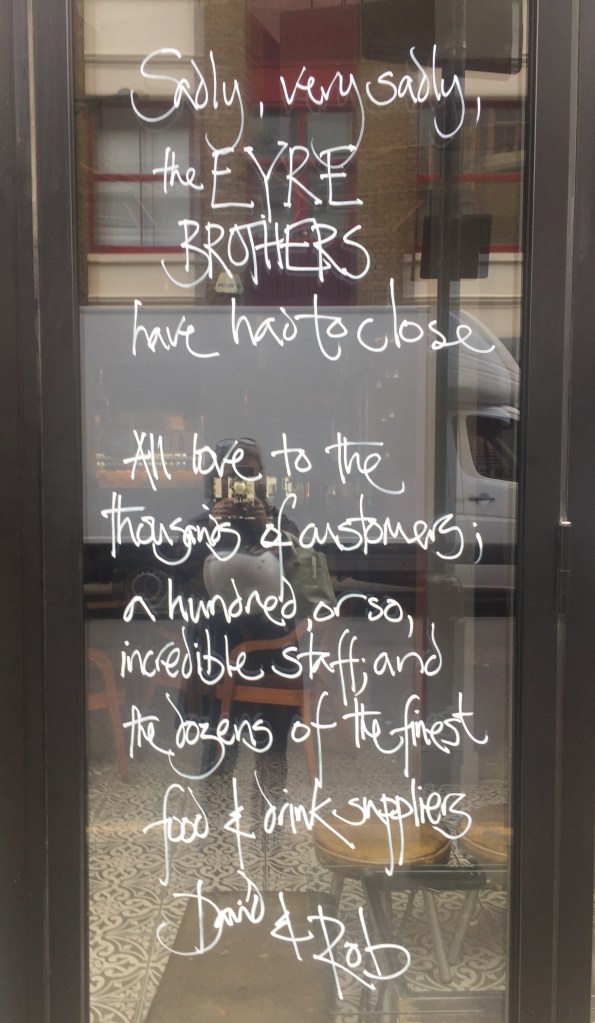 Sadly, very sadly,
the EYRE
BROTHERS
have had to close
All love to the
thousands of customers;
a hundred, or so,
incredible staff; and
the dozens of the finest
food & drink suppliers
David & Rob